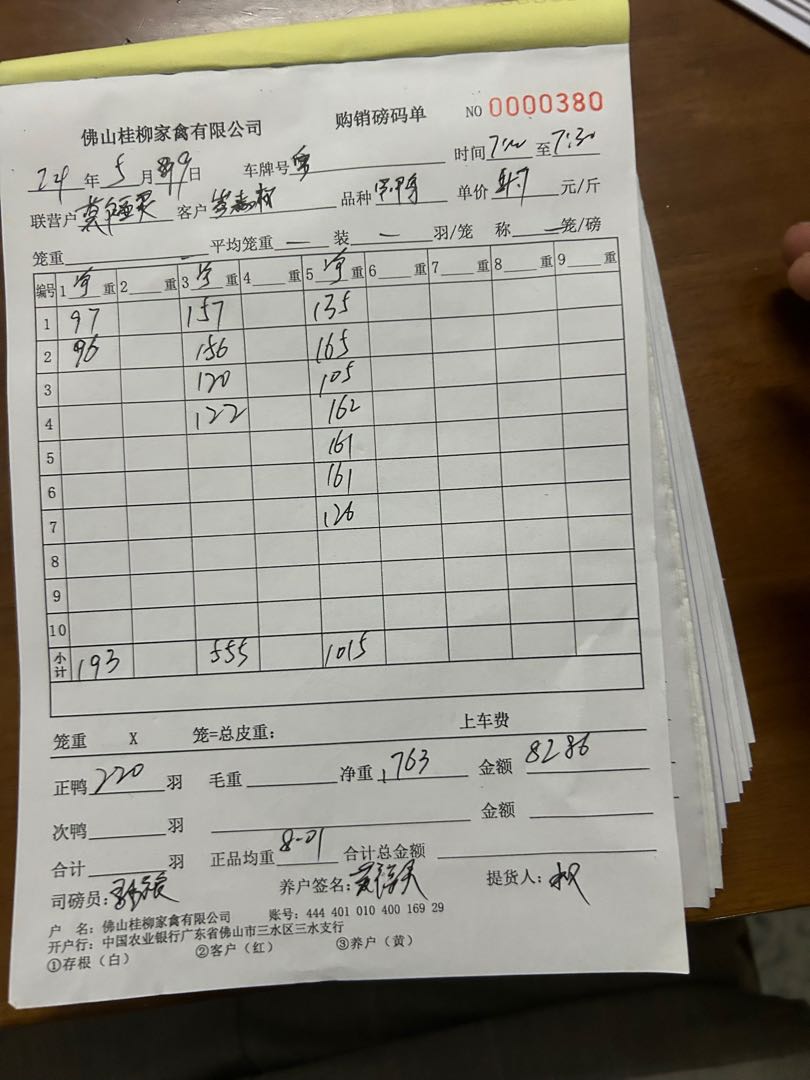 佛山桂柳家禽有限公司 购销磅码单 NO 0000380
24 年 5 月 9 日 车牌号 时间 至 7:30
联营户 客户 品种 单价 4.7 元/斤
笼重 — 平均笼重 — 装 — 羽/笼 称 — 笼/磅
编号 1 净 重 2 重 3 净 重 4 重 5 净 重 6 重 7 重 8 重 9 重
1 97 157 135
2 96 156 165
3 120 105
4 122 162
5 161
6 161
7 126
8
9
10
小计 193 555 1015
笼重 X 笼=总皮重: 上车费
正鸭 220 羽 毛重 净重 1763 金额 8286
次鸭 羽 金额
合计 羽 正品均重 8-01 合计总金额
司磅员: 养户签名: 提货人:
户 名: 佛山桂柳家禽有限公司 账号: 444 401 010 400 169 29
开户行: 中国农业银行广东省佛山市三水区三水支行
①存根(白) ②客户(红) ③养户(黄)